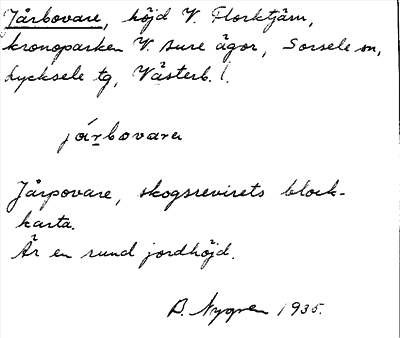 Jårbovare, höjd V. Florktjärn,
kronoparken V. Sure ägor, Sorsele sn,
Lycksele tg, Västerb. l.
járbovarɛ
Jårpovare, skogsrevirets block-
karta.
Är en rund jordhöjd.
B. Nygren 1935.